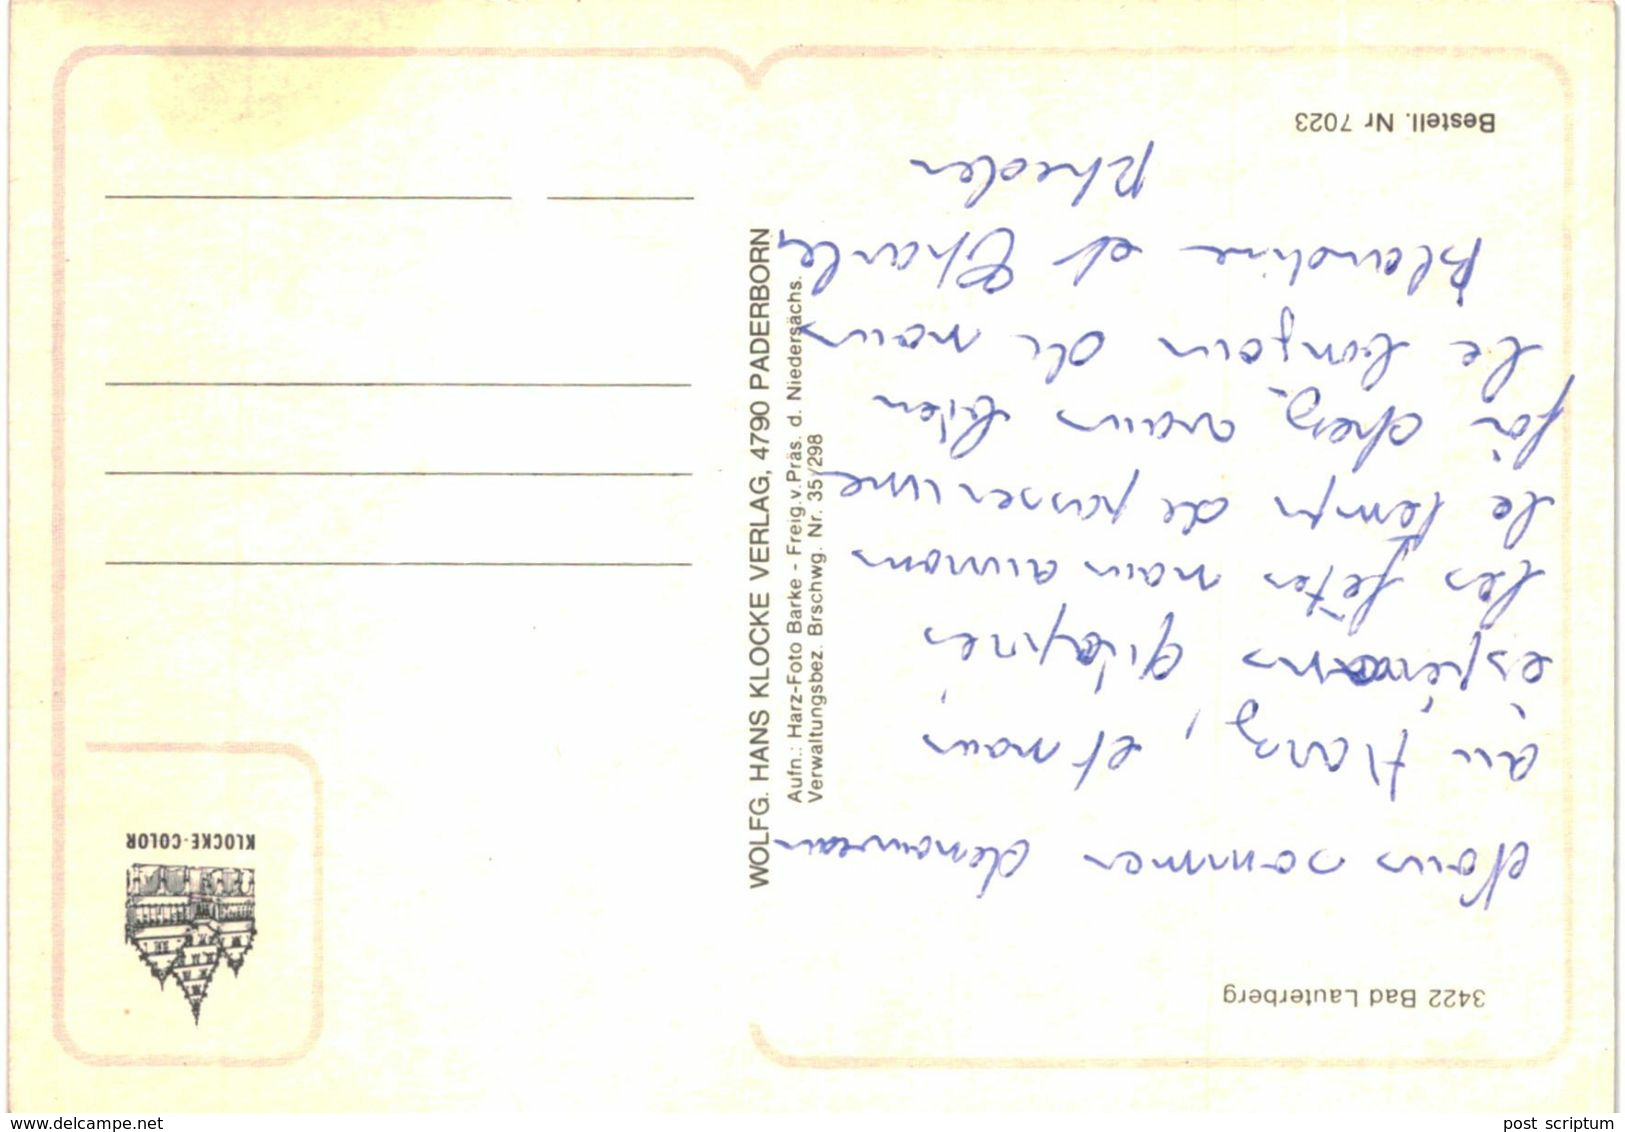 3422 Bad Lauterberg
Nous sommes denouveau
au Harz, et nous
espérons qu'après
les fêtes nous aurons
le temps de passer une
fois chez vous bien
le bonjour de nous
Blandine et Charles
Rheder
Bestell. Nr 7023
WOLFG. HANS KLOCKE VERLAG, 4790 PADERBORN
Aufn.: Harz-Foto Barke - Freig.v.Präs. d. Niedersächs.
Verwaltungsbez. Brschwg. Nr. 35/298
KLOCKE-COLOR
www.delcampe.net
post scriptum